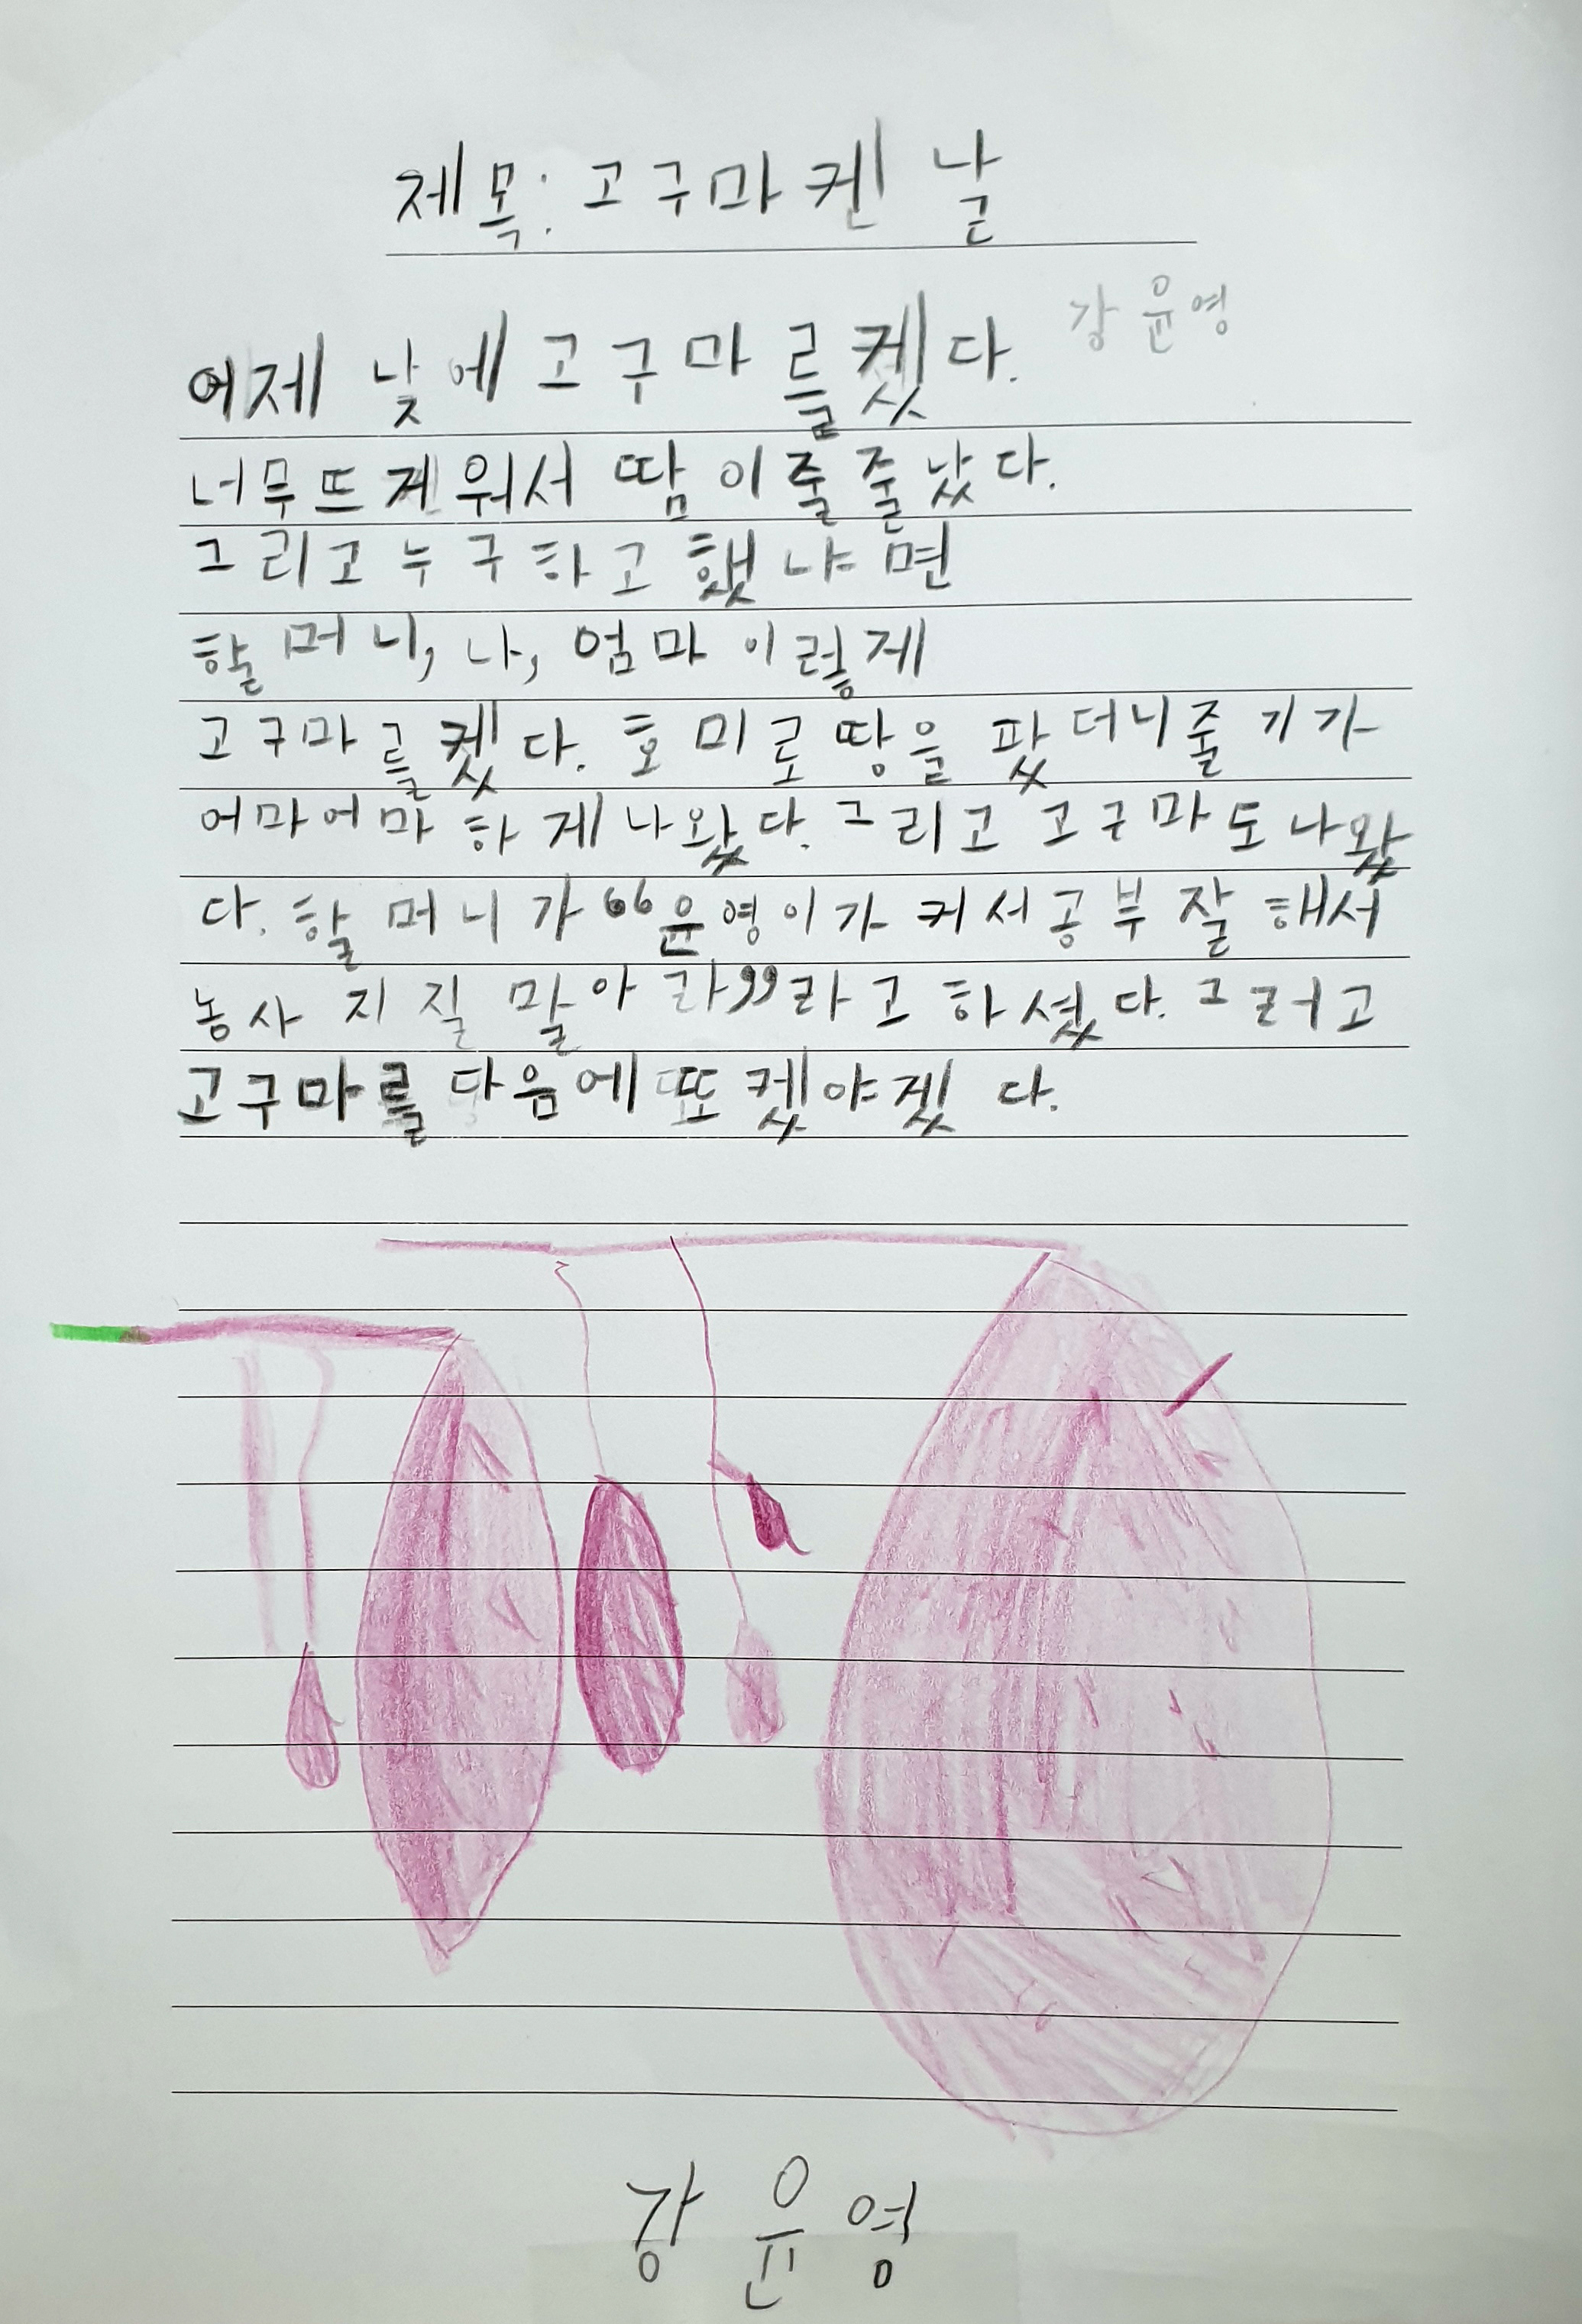 제목: 고구마 켄 날
강윤영
어제 낮에 고구마를 켓다.
너무 뜨게워서 땀이 줄줄 났다.
그리고 누구하고 했냐면
할머니, 나, 엄마 이렇게
고구마를 켓다. 호미로 땅을 팠더니 줄기가
어마어마 하게 나왔다. 그리고 고구마도 나왔
다. 할머니가 “윤영이가 커서 공부 잘 해서
농사 지질 말아라”라고 하셨다. 그러고
고구마를 다음에 또 켓야겟다.
강윤영